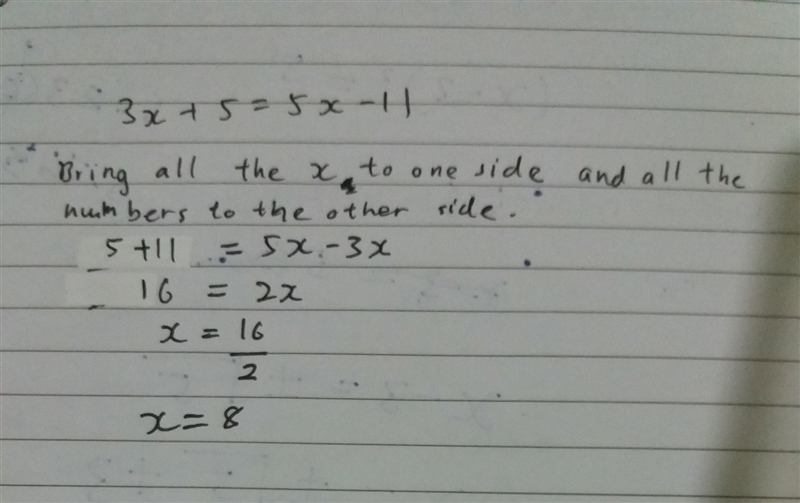 3x + 5 = 5x - 11
Bring all the x to one side and all the
numbers to the other side.
5 + 11 = 5x - 3x
16 = 2x
x = 16/2
x = 8